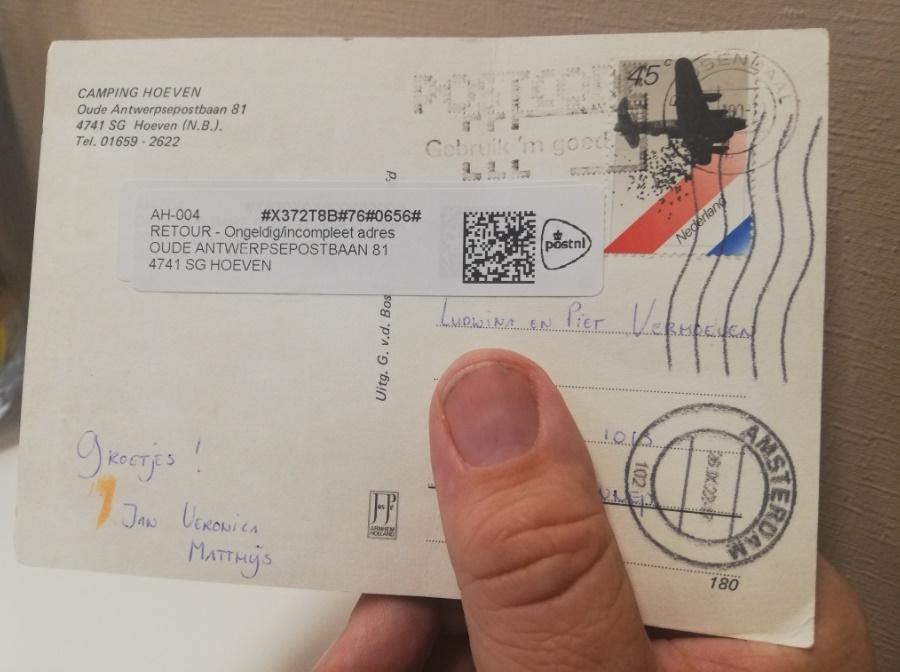 CAMPING HOEVEN
Oude Antwerpsepostbaan 81
4741 SG Hoeven (N.B.).
Tel. 01659 - 2622
POSTCODE
Gebruik 'm goed.
45c
Nederland
AH-004 #X372T8B#76#0656#
RETOUR - Ongeldig/incompleet adres
OUDE ANTWERPSEPOSTBAAN 81
4741 SG HOEVEN
postnl
Uitg. G. v.d. Bos
Ludwina en Piet Vermoeven
Groetjes !
Jan Veronica
Matthijs
JosPé
ARNHEM
HOLLAND
1013
AMSTERDAM
102
180